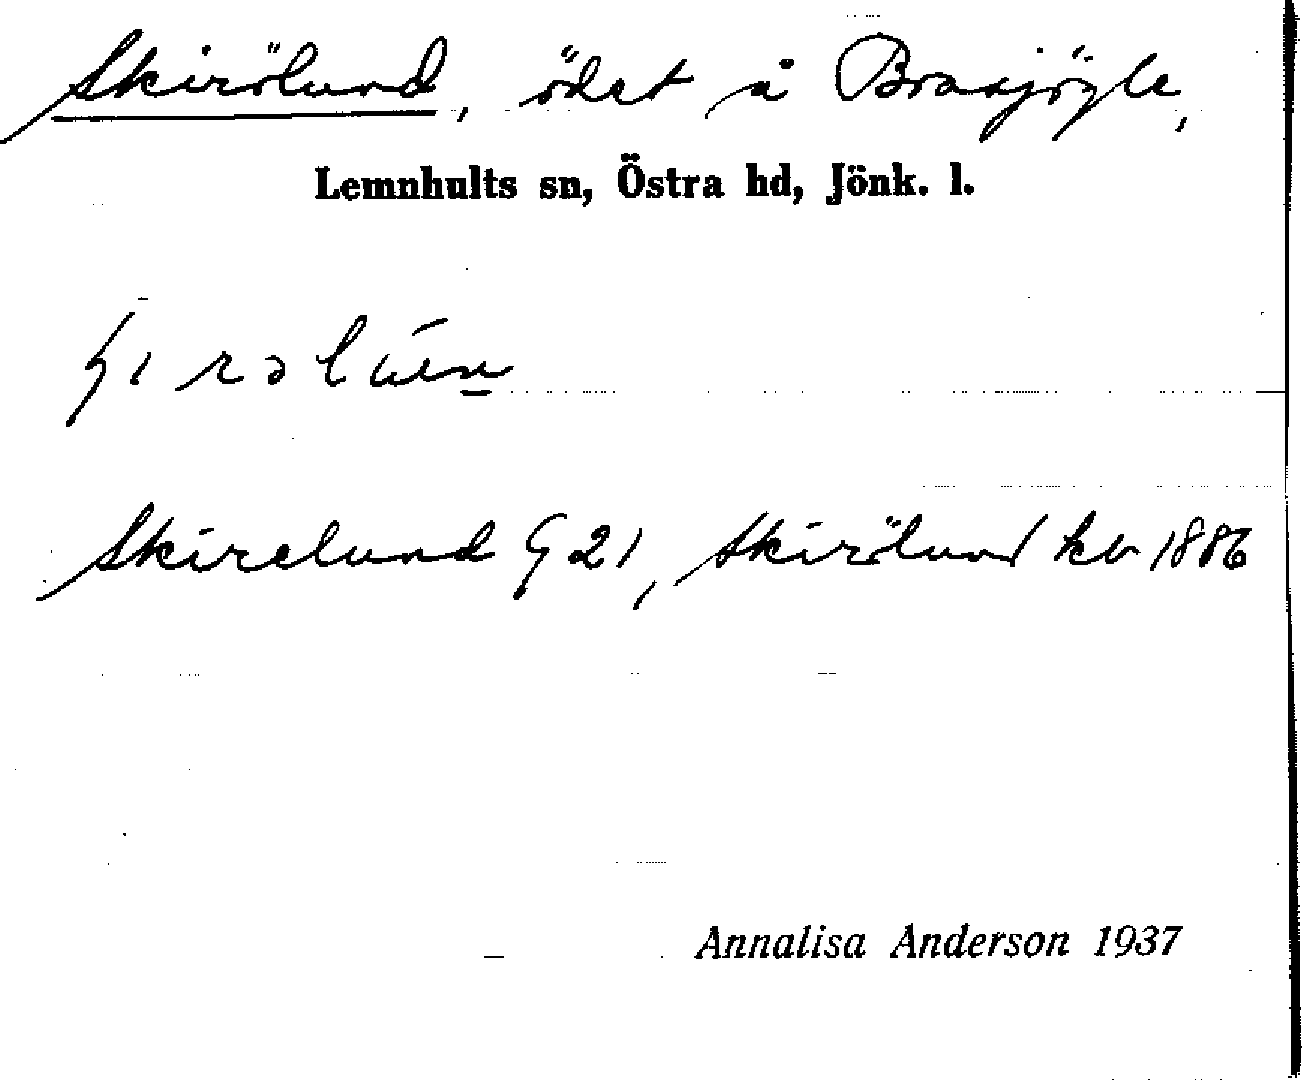 Skirölund, ödet å Brasjögle,
Lemnhults sn, Östra hd, Jönk. l.
Skirelund G 21, Skirölund kb 1886
Annalisa Anderson 1937